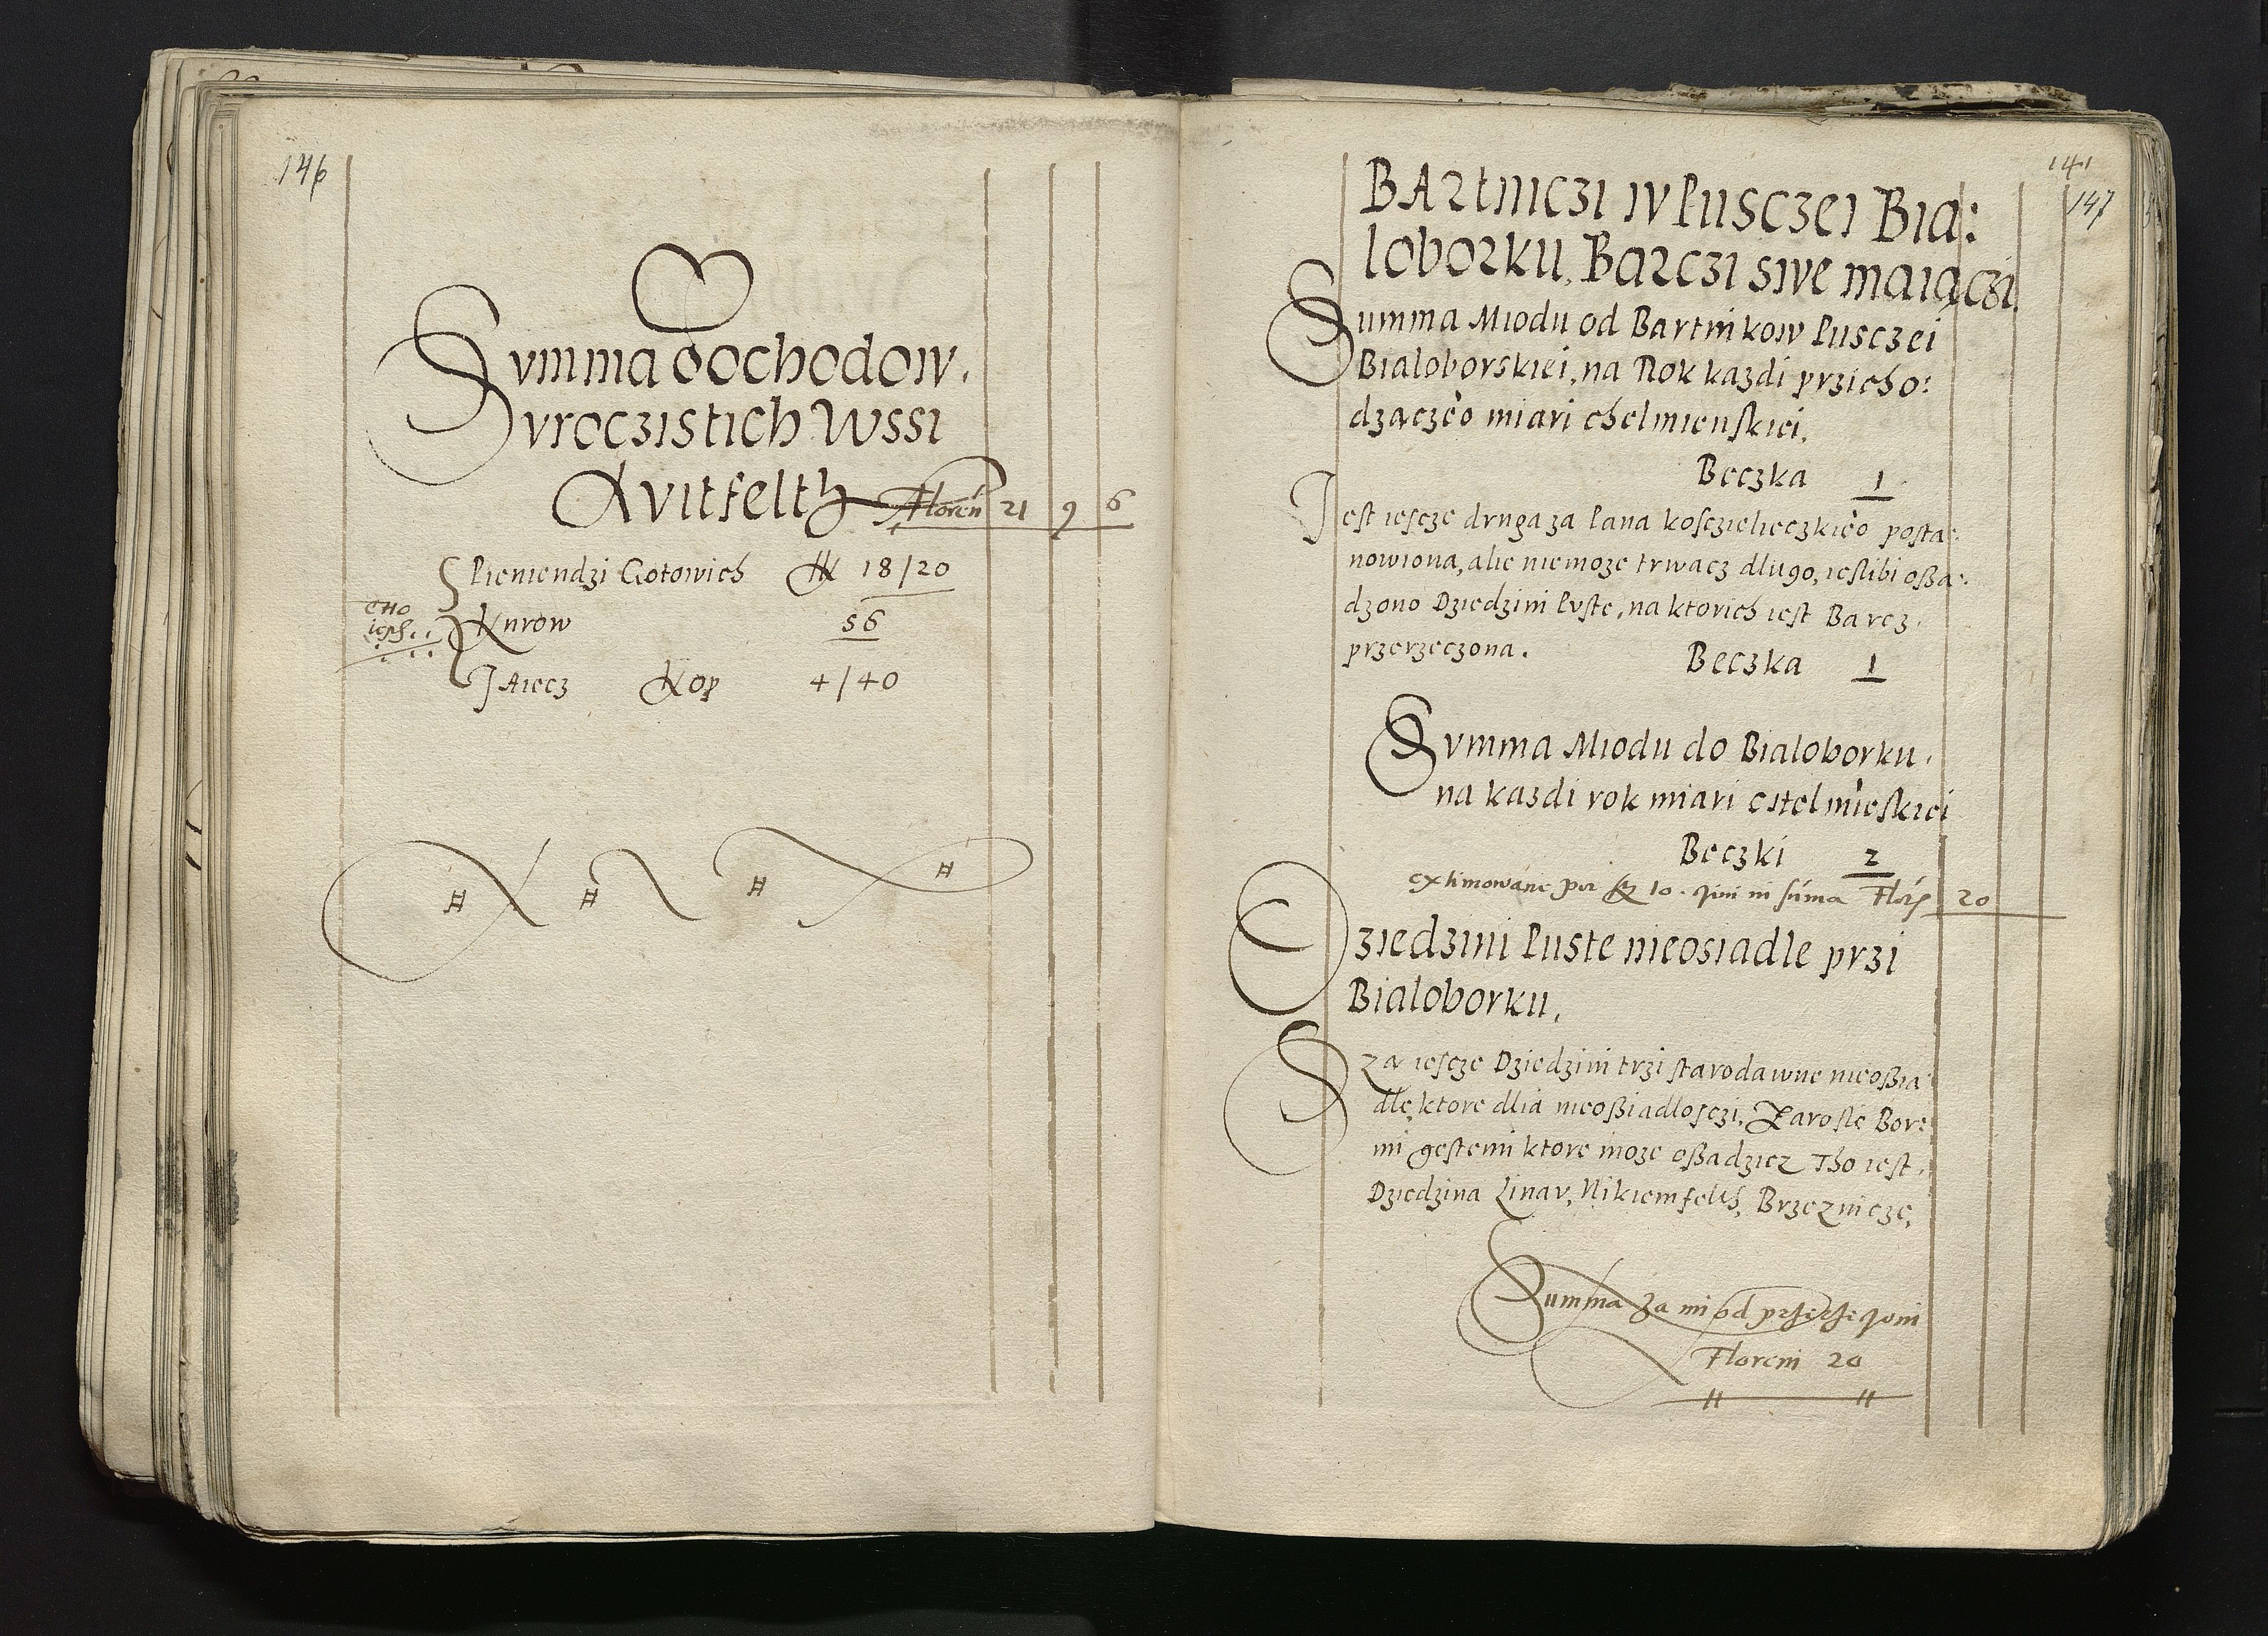 146
Summa dochodow.
vroczistich Wssi
Kvitfelth Floren 21 9 6
Pieniendzi Gotowich 18/20
THO
iest
Knrow 56
JAiecz Kop 4/40
141
147
BARtniczi w Pusczei Bia:
loborku, Barczi swe maiączi.
Summa Miodu od Bartnikow Pusczei
Bialoborskiei, na Rok kazdi przicho:
dzączeo miari chelmienskiei.
Beczka 1
Jest iescze druga za Pana kosczieleczkieo posta:
nowiona, alie niemoze trwacz dlugo, ieslibi oßa:
dzono Dziedzini Puste, na ktorich iest Barcz
przerzeczona.
Beczka 1
Summa Miodu do Bialoborku.
na kazdi rok miari chelmieskiei
Beczki 2
extimowane per 10. in summa Flor 20
Dziedzini Puste nieosiadle przi
Bialoborku.
Sza iescze Dziedzini trzi starodawne nieoßia
dle, ktore dlia nieoßiadlosczi, Zarosle Bor:
mi gestemi ktore moze oßadzicz Tho iest.
Dziedzina Linav, Nikiemfelth, Brzeznicze,
Summa za miod przerzeczoni
Floreni 20